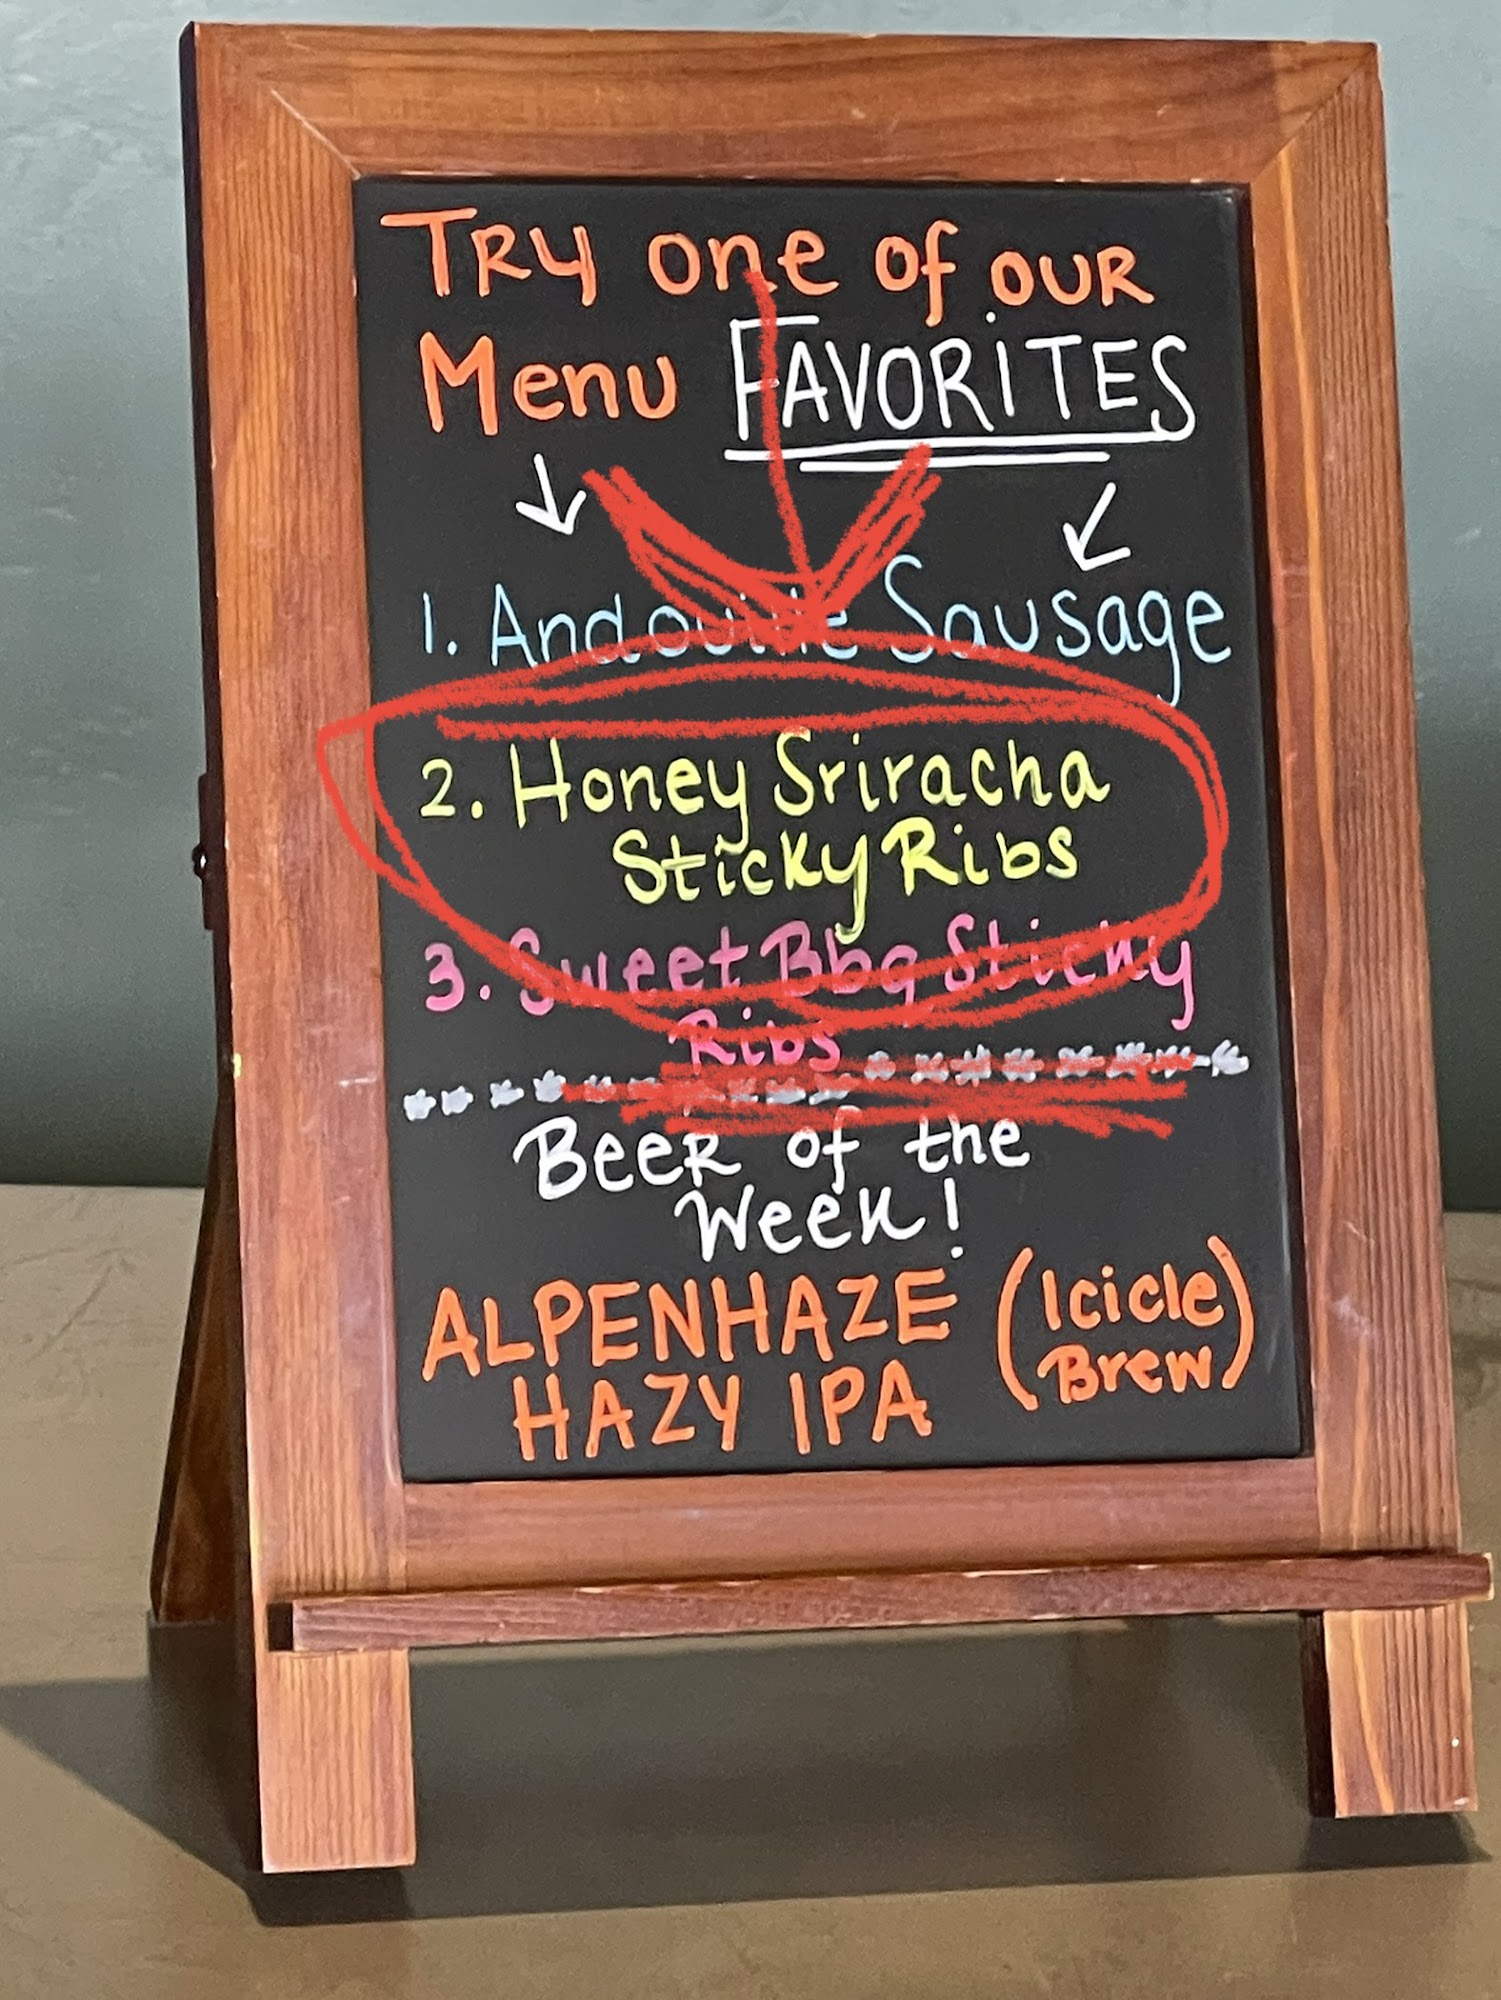 TRY one of OUR
Menu FAVORITES
1. Andouille Sausage
2. Honey Sriracha
Sticky Ribs
3. Sweet Bbq Sticky
Ribs
BEER of the
Week!
ALPENHAZE (Icicle
HAZY IPA Brew)